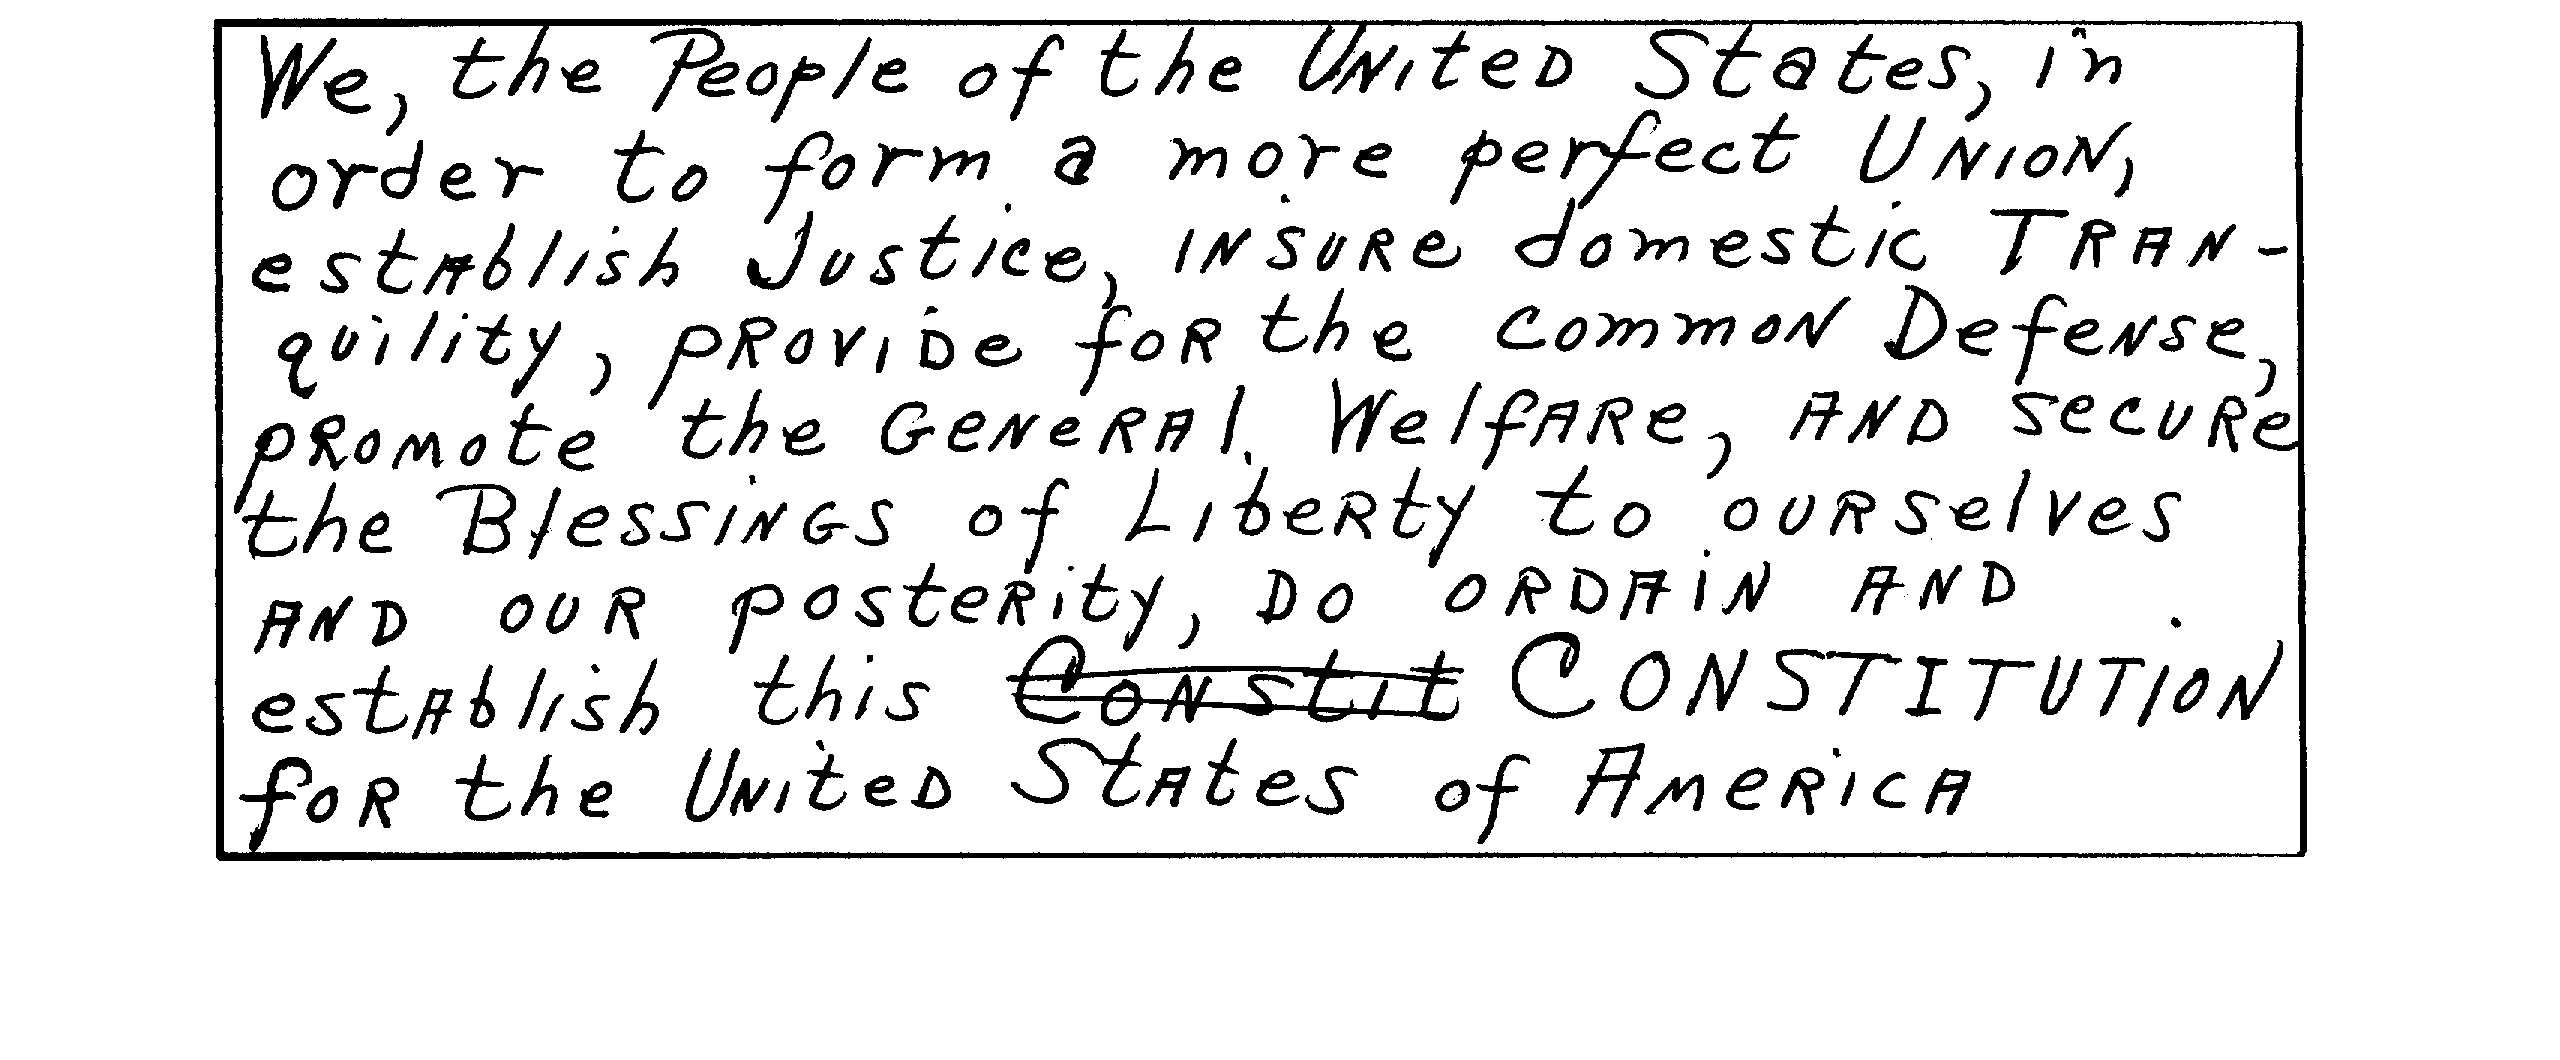 We, the People of the United States, in
order to form a more perfect Union,
establish Justice, insure domestic Tran-
quility, provide for the common Defense,
promote the General Welfare, and secure
the Blessings of Liberty to ourselves
and our posterity, do ordain and
establish this Constit CONSTITUTION
for the United States of America